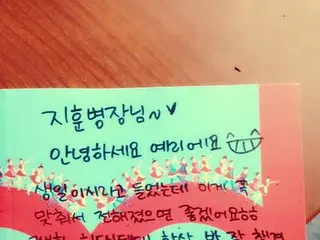 지훈병장님~♥
안녕하세요 예리에요
생일이시라고 들었는데 이게 꼭
맞춰서 전해졌으면 좋겠어요ㅎㅎ
항상 밥 잘 챙겨